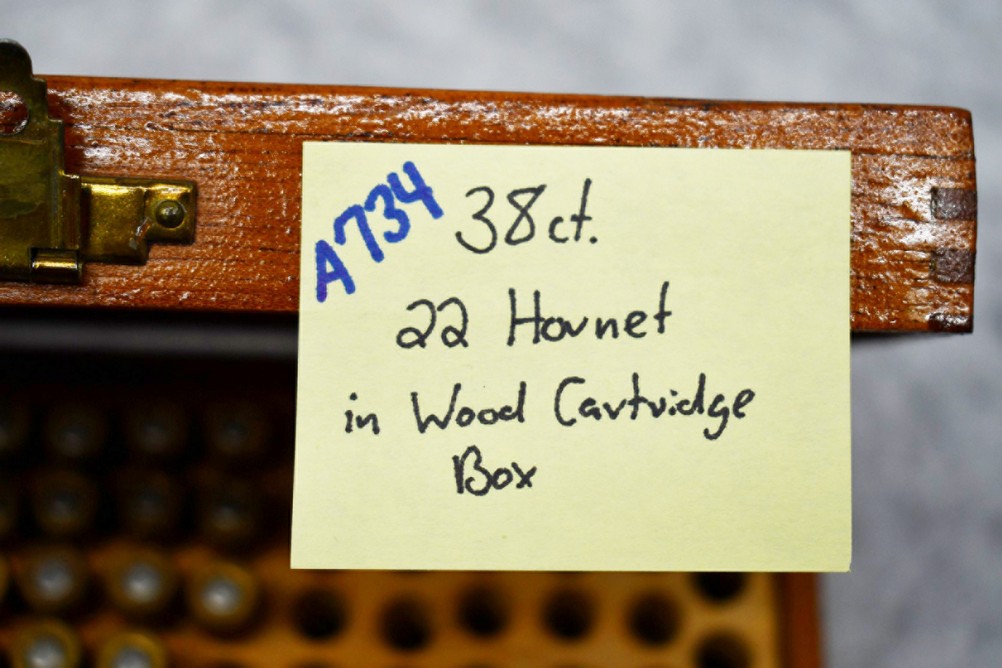 A734
38ct.
22 Hornet
in Wood Cartridge
Box